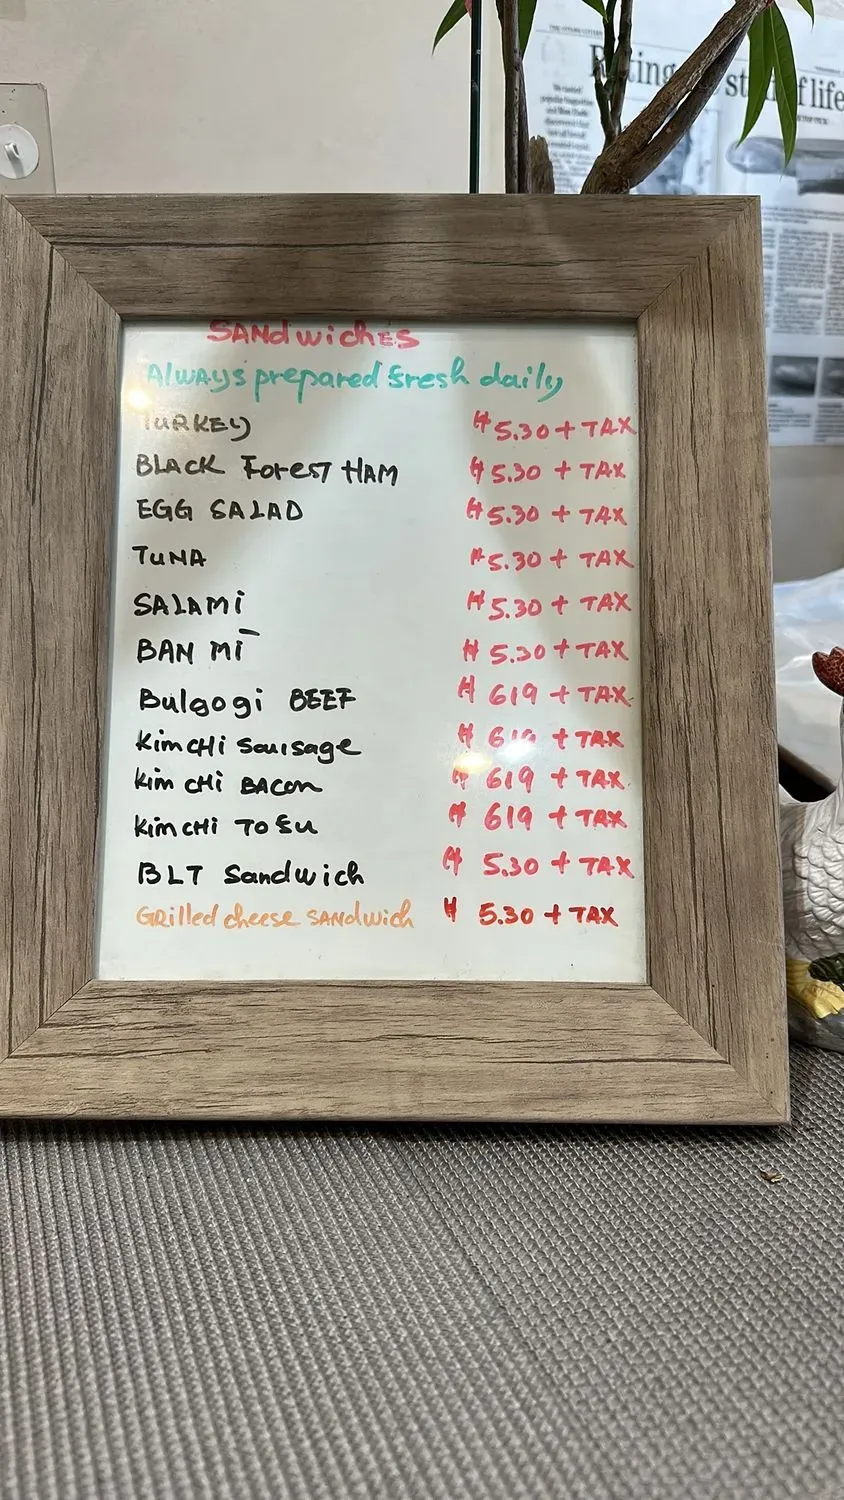 THE OTTAWA CITIZEN
of life
SANdwicHES
Always prepared fresh daily
TURKEY $5.30 + TAX
BLACK Forest HAM $5.30 + TAX
EGG SALAD $5.30 + TAX
TUNA $5.30 + TAX
SALAMi $5.30 + TAX
BAN Mī $5.30 + TAX
Bulgogi BEEF $ 619 + TAX
KimCHi Sausage $ 619 + TAX
Kim CHi BACON $ 619 + TAX
Kim CHi TOfu $ 619 + TAX
BLT Sandwich $ 5.30 + TAX
GRilled cheese SANdwich $ 5.30 + TAX